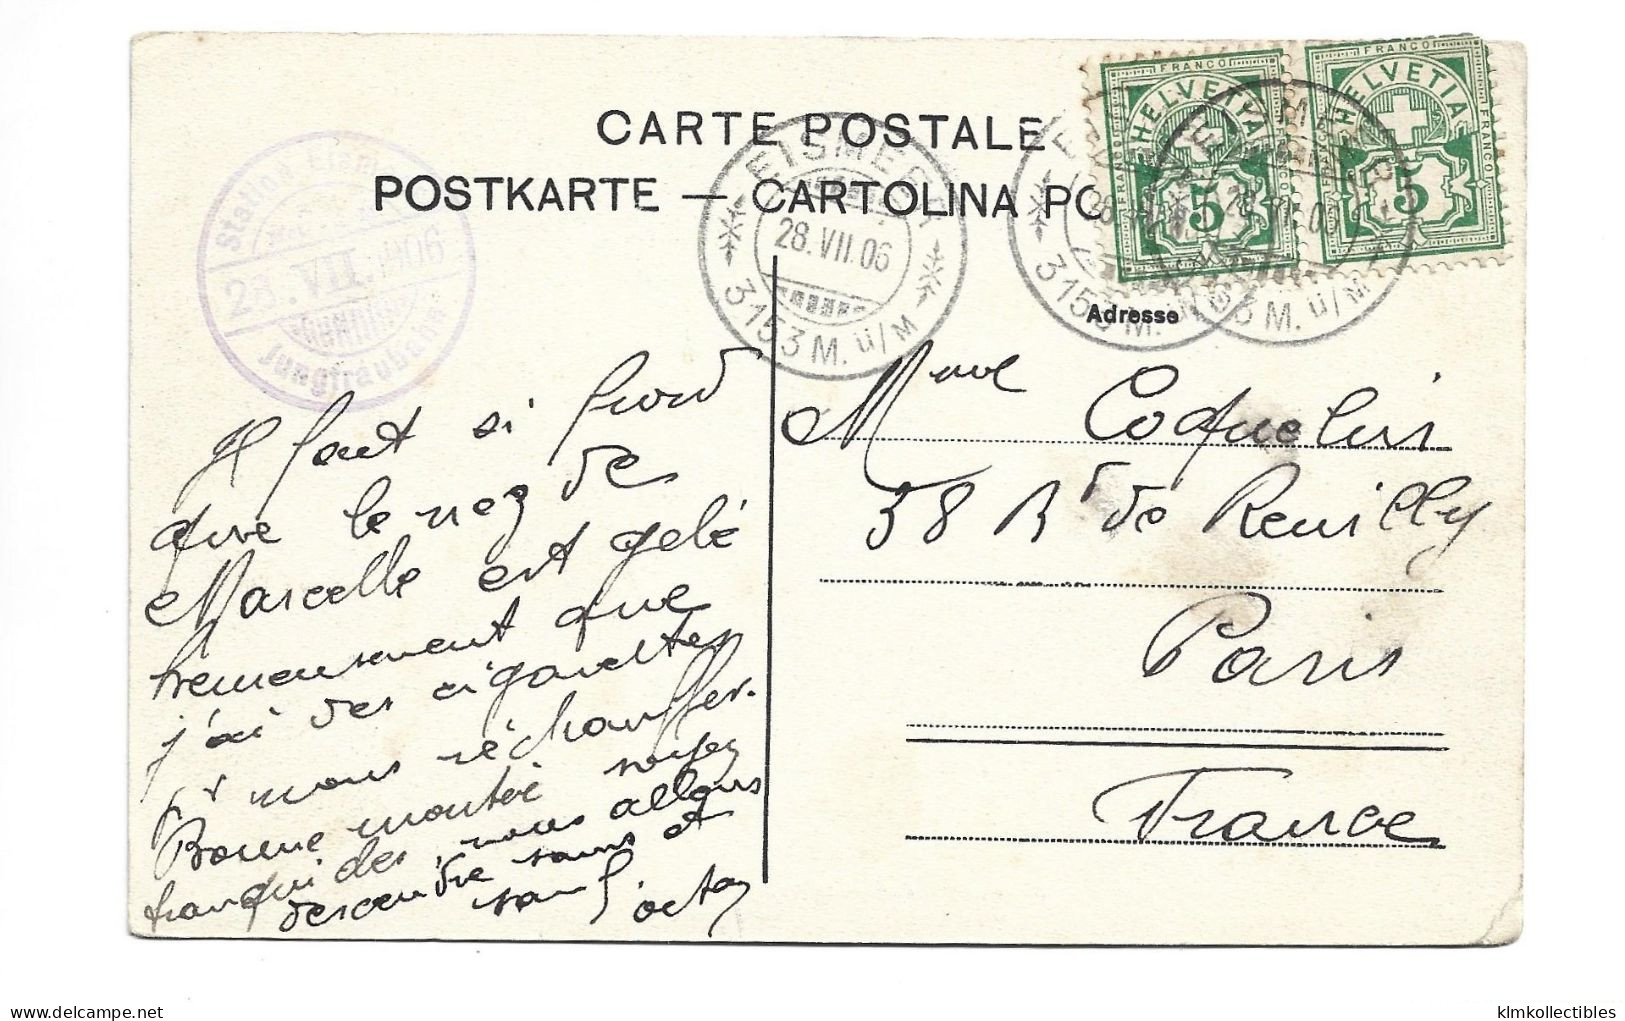 CARTE POSTALE
POSTKARTE — CARTOLINA PO
Adresse
Station Eismeer
28.VII.1906
Jungfraubahn
EISMEER
28.VII.06
3153 M. ü/M
FRANCO
HELVETIA
5
FRANCO
HELVETIA
5
Il fait si froid
que le nez de
Marcelle est gelé
heureusement que
j'ai des cigarettes
pr nous réchauffer.
Bonne montée soyez
tranquilles, nous allons
descendre sains et
saufs
Octav
Mme Coquelin
58 Bd de Reuilly
Paris
France
klmkollectibles